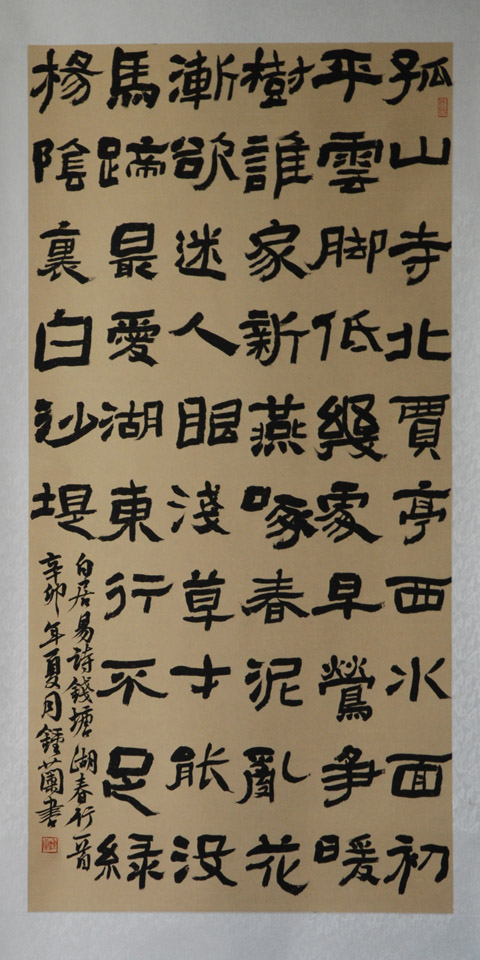 孤山寺北賈亭西水面初
平雲脚低幾處早鶯爭暖
樹誰家新燕啄春泥亂花
漸欲迷人眼淺草才能没
馬蹄最愛湖東行不足緑
楊陰裏白沙堤
白居易詩錢塘湖春行一首
辛卯年夏月鍾書